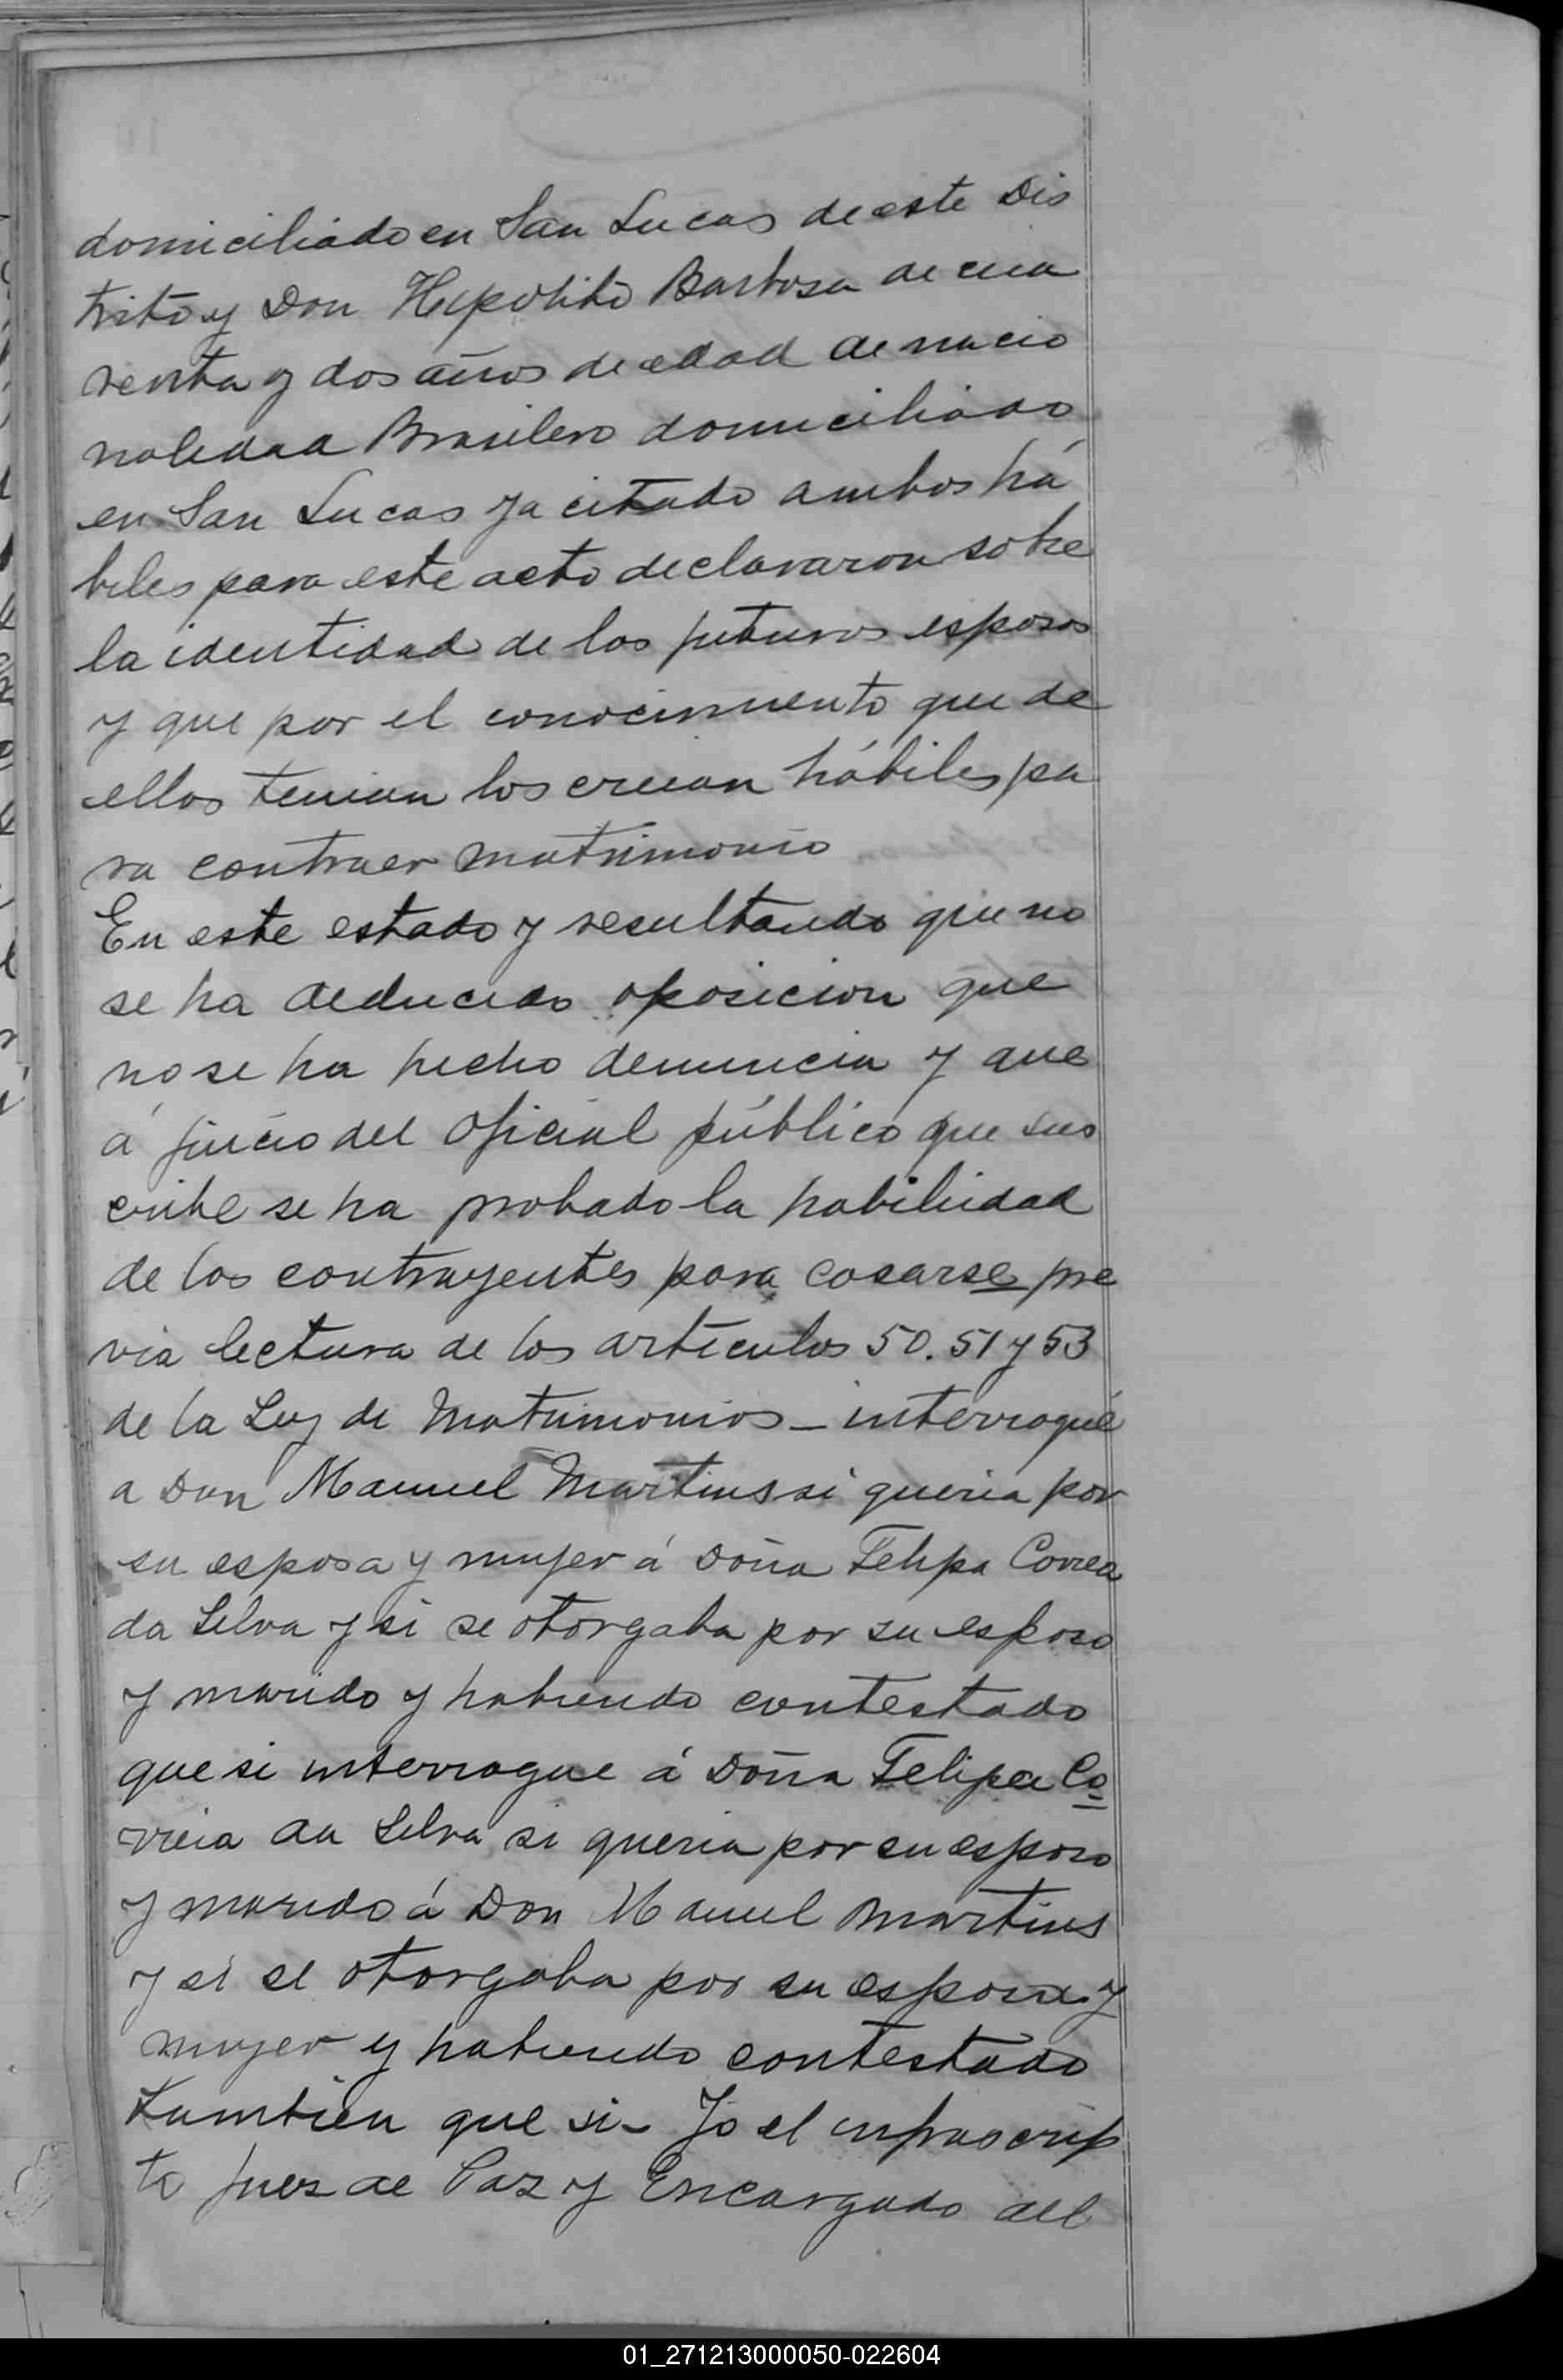 domiciliado en San Lucas de este Dis
trito y Don Hipolito Barbosa de cua
renta y dos años de edad de nacio
nalidad Brasilero domiciliado
en San Lucas ya citado ambos há
biles para este acto declararon sobre
la identidad de los futuros esposos
y que por el conocimiento que de
ellos tenian los creian hábiles pa
ra contraer matrimonio
En este estado y resultando que no
se ha deducido oposicion que
no se ha hecho denuncia y que
á juicio del oficial público que sus
cribe se ha probado la habilidad
de los contrayentes para casarse pre
via lectura de los artículos 50. 51 y 53
de la Ley de Matrimonios - interrogué
a Don Manuel Martins si queria por
su esposa y mujer á Doña Felipa Correa
da Silva y si se otorgaba por su esposo
y marido y habiendo contestado
que si interrogue á Doña Felipa Co
rreia da Silva si queria por su esposo
y marido á Don Manuel Martins
y si se otorgaba por su esposa y
mujer y habiendo contestado
tambien que si - Yo el infrascrip
to Juez de Paz y Encargado del
01_271213000050-022604